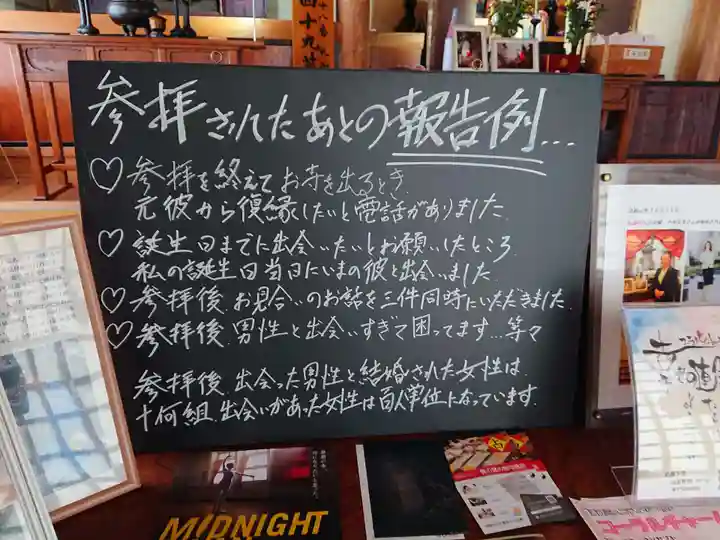 四十九
参拝されたあとの報告例...
♡参拝を終えてお寺を出るとき、
元彼から復縁したいと電話がありました.
♡誕生日までに出会いたいとお願いしたところ
私の誕生日当日にいまの彼と出会いました.
♡参拝後、お見合いのお話を三件同時にいただきました.
♡参拝後、男性と出会いすぎて困ってます...等々
参拝後、出会った男性と結婚された女性は、
十何組、出会いがあった女性は百人単位になっています.
MIDNIGHT
コーラルチャー